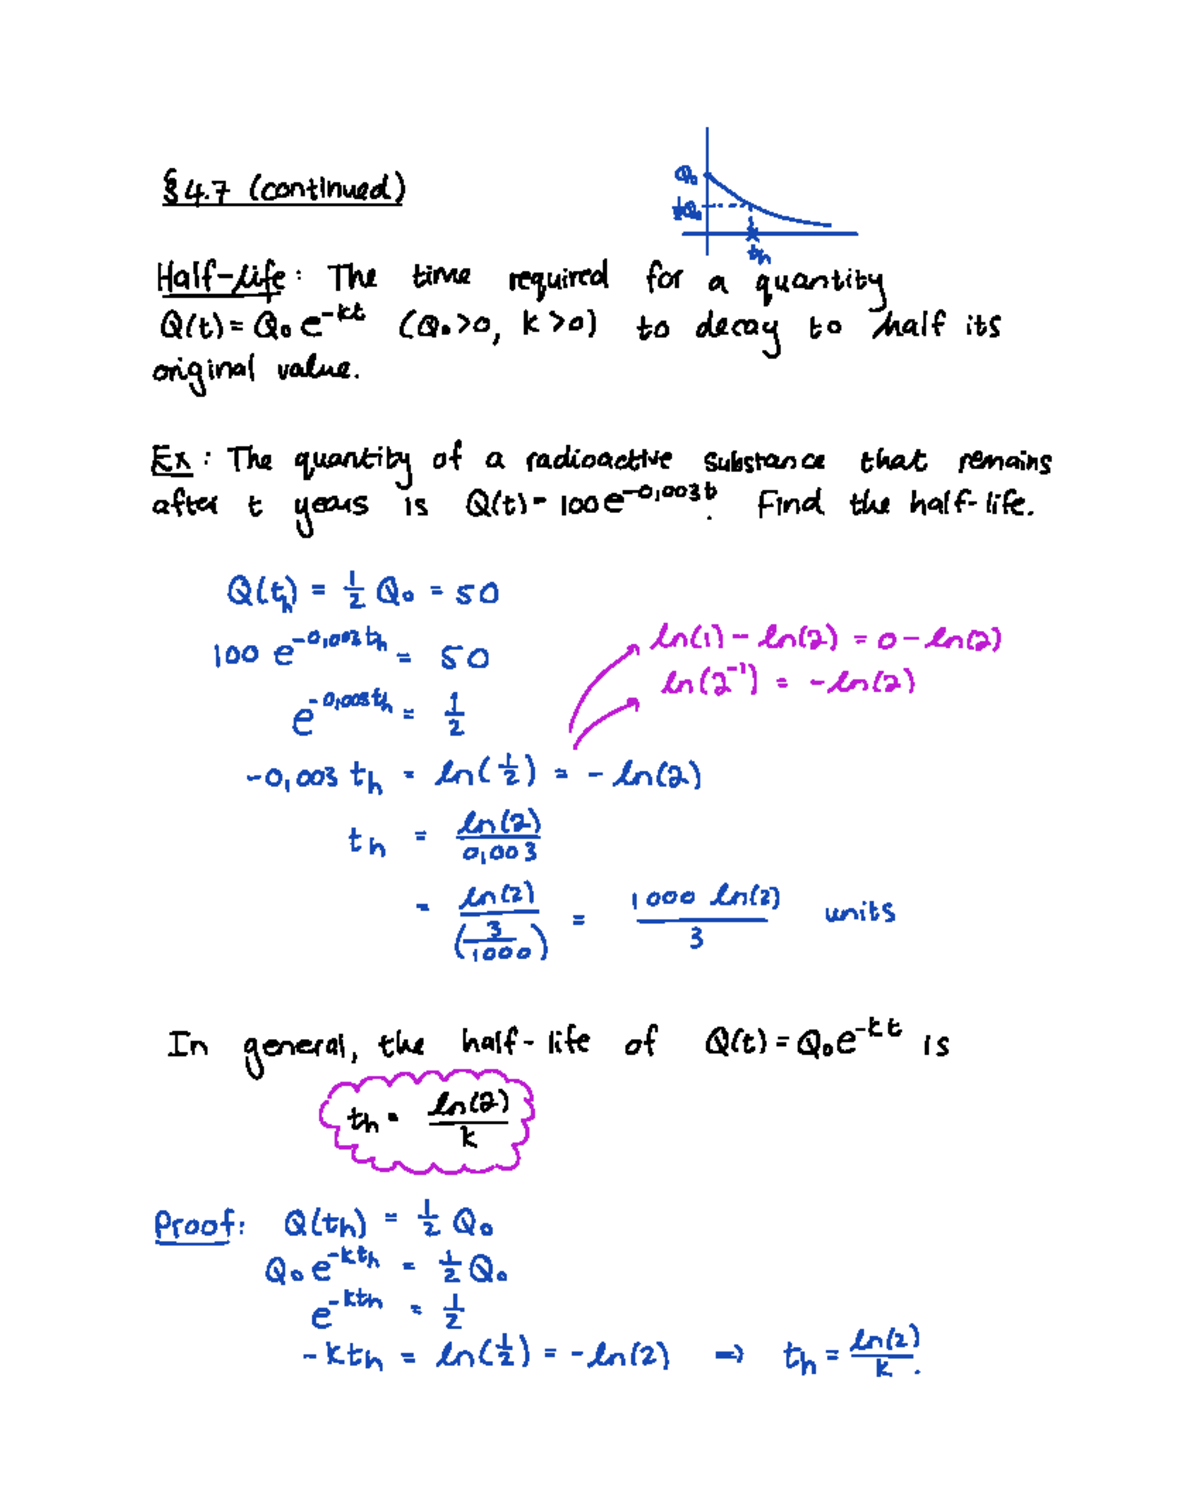 §4.7 (continued)
Q₀
½Q₀
t_h
Half-life: The time required for a quantity
Q(t) = Q₀ e^{-kt} (Q₀>0, k>0) to decay to half its
original value.
Ex: The quantity of a radioactive substance that remains
after t years is Q(t) = 100e^{-0,003t}. Find the half-life.
Q(t_h) = 1/2 Q₀ = 50
100 e^{-0,003t_h} = 50
ln(1) - ln(2) = 0 - ln(2)
ln(2^{-1}) = -ln(2)
e^{-0,003t_h} = 1/2
-0,003 t_h = ln(1/2) = -ln(2)
t_h = ln(2)/0,003
= ln(2)/(3/1000) = 1000 ln(2)/3 units
In general, the half-life of Q(t) = Q₀e^{-kt} is
t_h = ln(2)/k
Proof: Q(t_h) = 1/2 Q₀
Q₀ e^{-kt_h} = 1/2 Q₀
e^{-kt_h} = 1/2
-kt_h = ln(1/2) = -ln(2) ⇒ t_h = ln(2)/k.